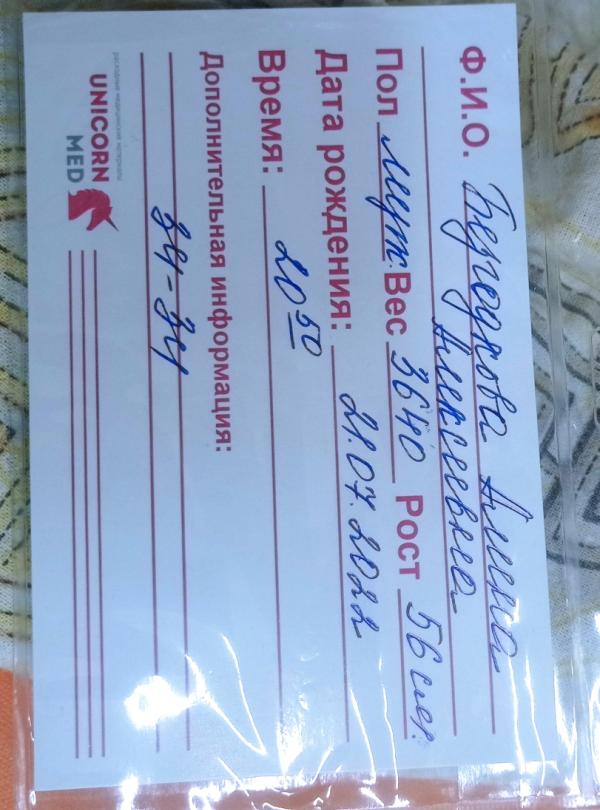 Ф.И.О. Бередкова Алена
Алексеевна
Пол муж. Вес 3640 Рост 56 см.
Дата рождения: 21.07.2022
Время: 20 50
Дополнительная информация:
34-34
расходные медицинские материалы
UNICORN
MED